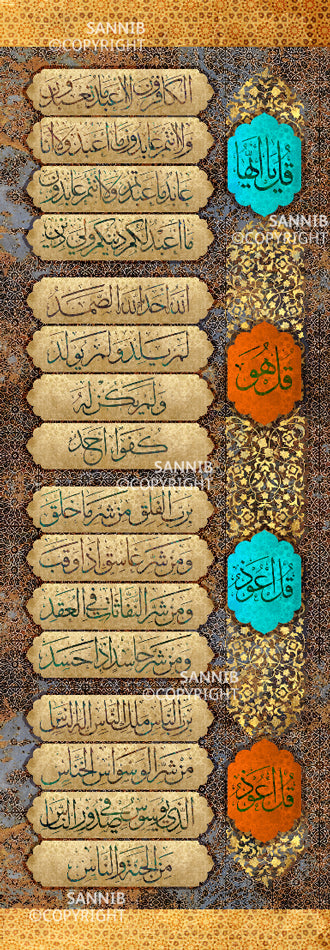 SANNIB
©COPYRIGHT
قل يا أيها
الكافرون لا أعبد ما تعبدون
ولا أنتم عابدون ما أعبد ولا أنا
عابد ما عبدتم ولا أنتم عابدون
ما أعبد لكم دينكم ولي دين
SANNIB
©COPYRIGHT
قل هو
الله احد الله الصمد
لم يلد ولم يولد
ولم يكن له
كفوا احد
SANNIB
©COPYRIGHT
قل أعوذ
برب الفلق من شر ما خلق
ومن شر غاسق اذا وقب
ومن شر النفاثات في العقد
ومن شر حاسد اذا حسد
SANNIB
©COPYRIGHT
قل أعوذ
برب الناس ملك الناس اله الناس
من شر الوسواس الخناس
الذي يوسوس في صدور الناس
من الجنة والناس
SANNIB
©COPYRIGHT